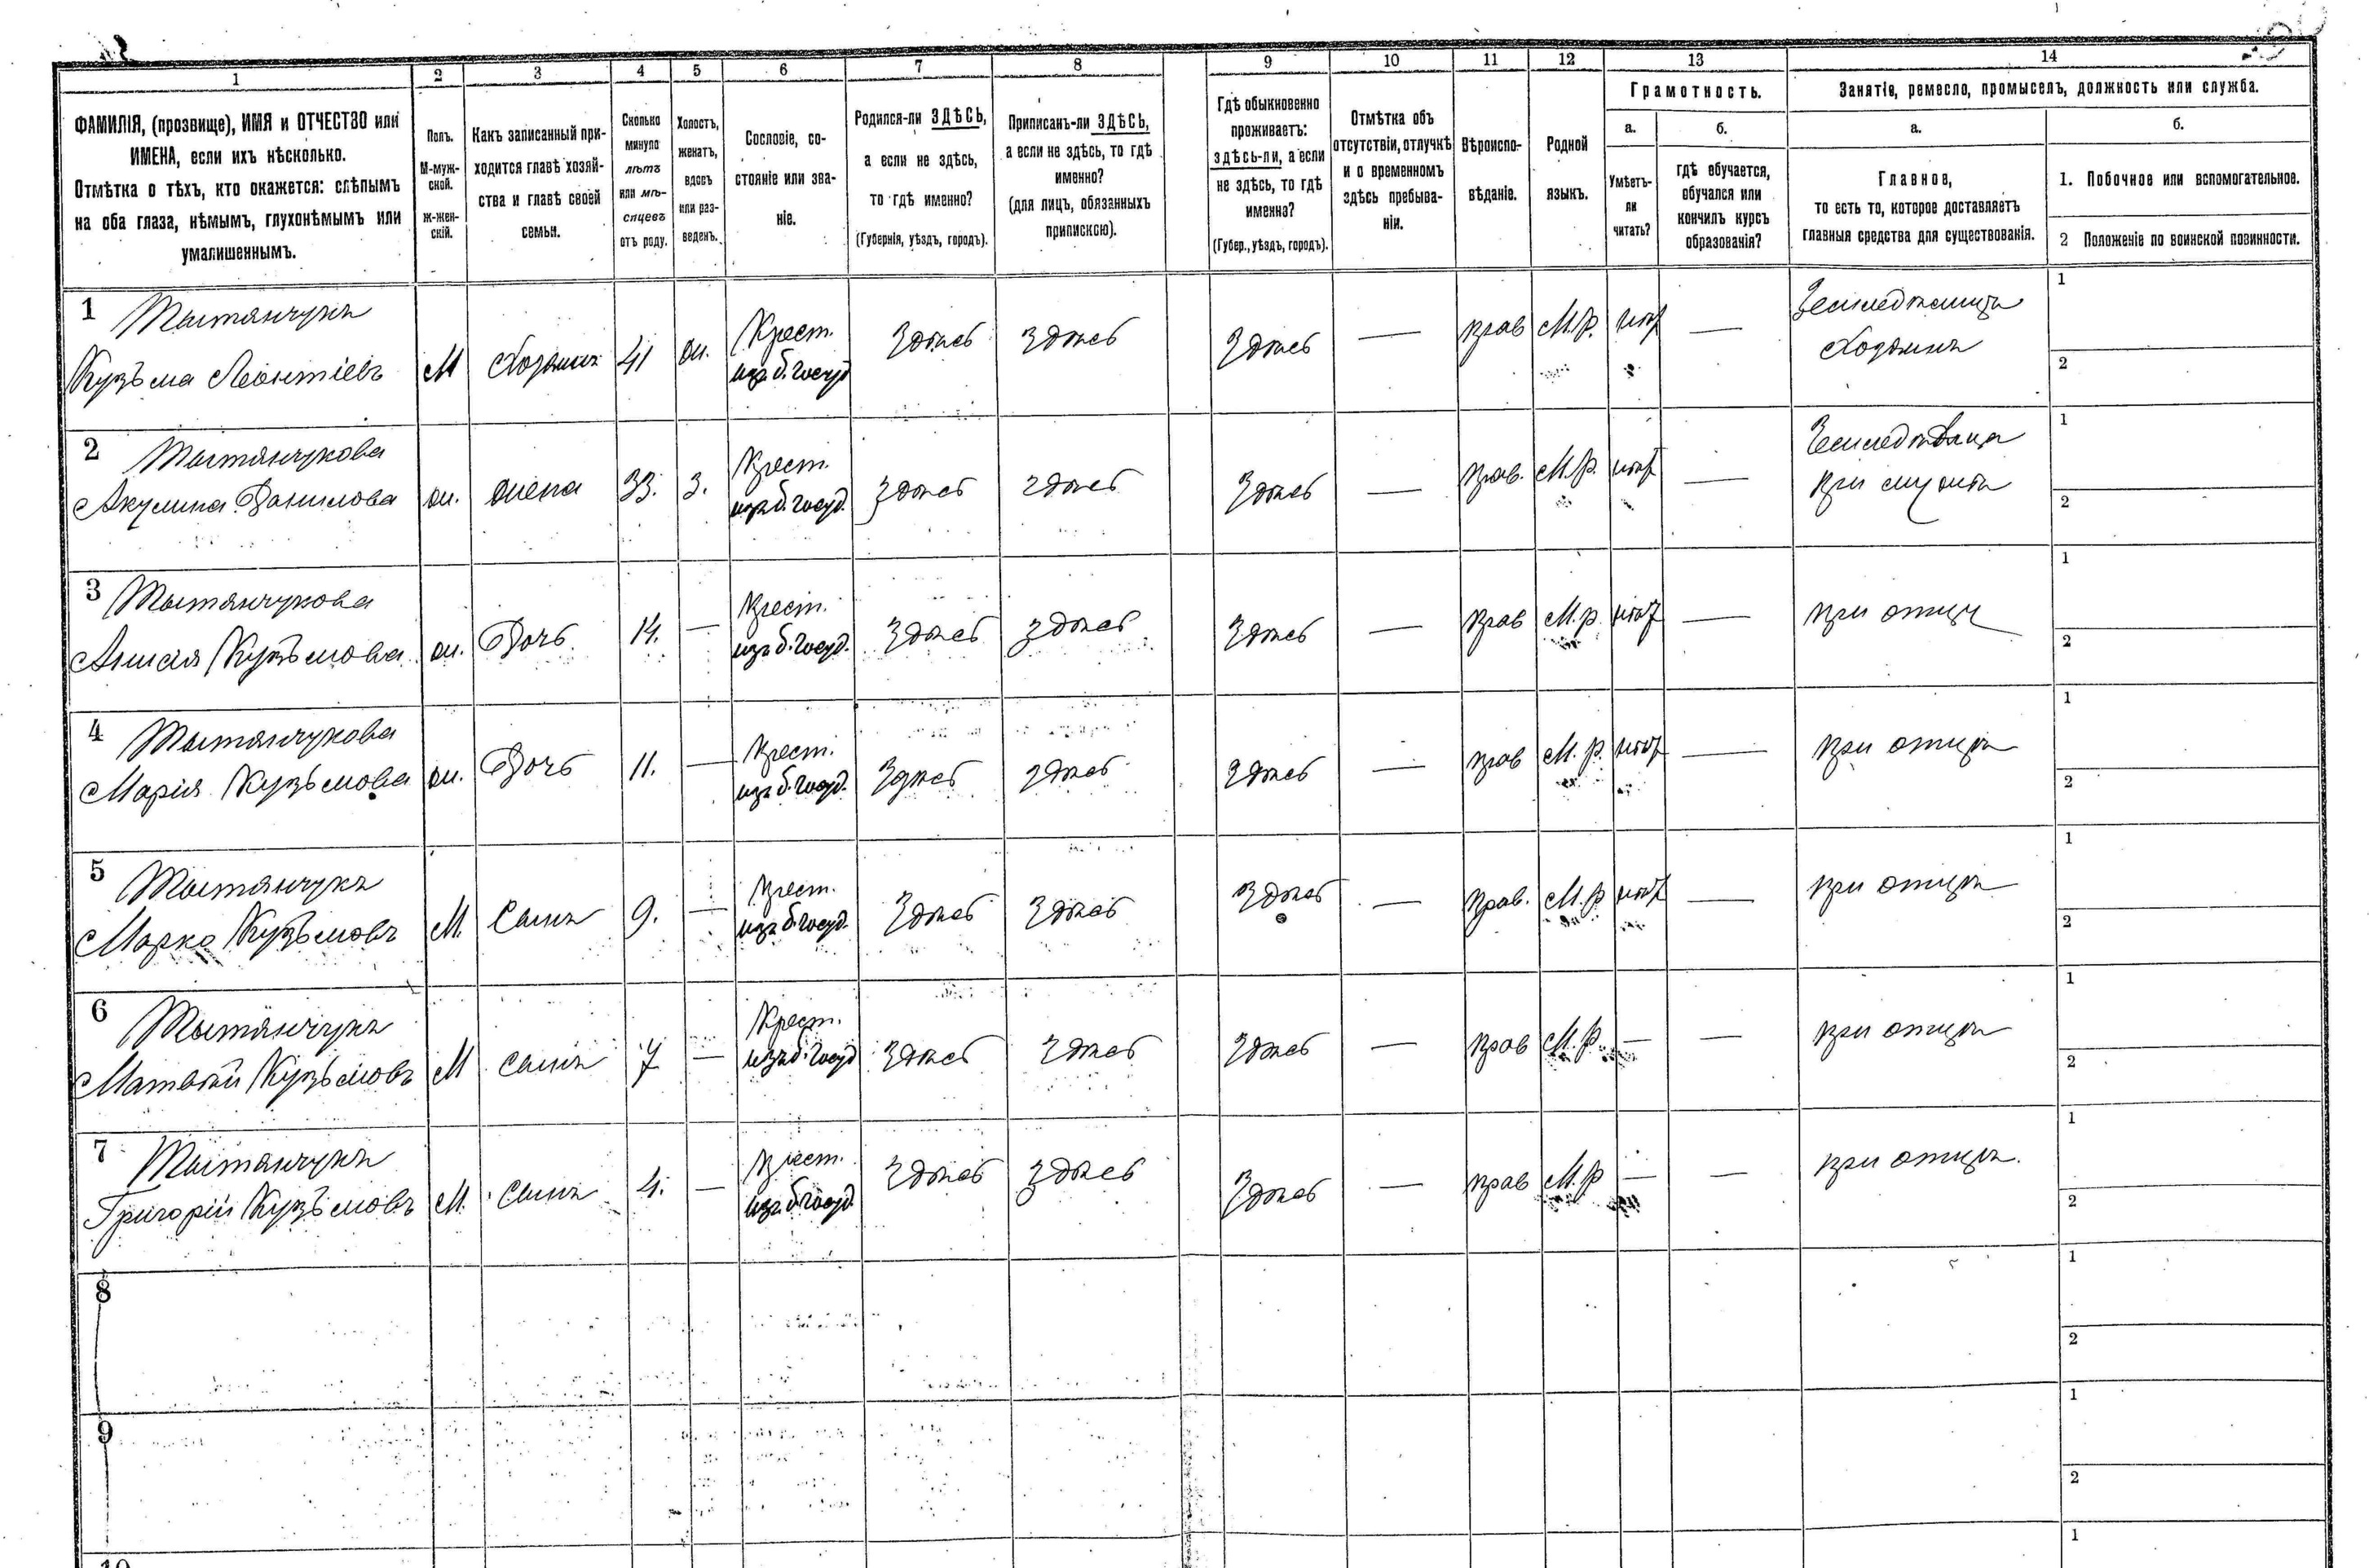 1 2 3 4 5 6 7 8 9 10 11 12 13 14
ФАМИЛІЯ, (прозвище), ИМЯ и ОТЧЕСТВО или
ИМЕНА, если ихъ нѣсколько.
Отмѣтка о тѣхъ, кто окажется: слѣпымъ
на оба глаза, нѣмымъ, глухонѣмымъ или
умалишеннымъ.
Полъ.
М-муж-
ской.
ж-жен-
скій.
Какъ записанный при-
ходится главѣ хозяй-
ства и главѣ своей
семьи.
Сколько
минуло
лѣтъ
или мѣ-
сяцевъ
отъ роду.
Холостъ,
женатъ,
вдовъ
или раз-
веденъ.
Сословіе, со-
стояніе или зва-
ніе.
Родился-ли ЗДѢСЬ,
а если не здѣсь,
то гдѣ именно?
(Губернія, уѣздъ, городъ).
Приписанъ-ли ЗДѢСЬ,
а если не здѣсь, то гдѣ
именно?
(для лицъ, обязанныхъ
припискою).
Гдѣ обыкновенно
проживаетъ:
здѣсь-ли, а если
не здѣсь, то гдѣ
именно?
(Губер., уѣздъ, городъ).
Отмѣтка объ
отсутствіи, отлучкѣ
и о временномъ
здѣсь пребыва-
ніи.
Вѣроиспо-
вѣданіе.
Родной
языкъ.
Грамотность.
а.
Умѣетъ-
ли
читать?
б.
гдѣ обучается,
обучался или
кончилъ курсъ
образованія?
Занятіе, ремесло, промыселъ, должность или служба.
а.
Главное,
то есть то, которое доставляетъ
главныя средства для существованія.
б.
1. Побочное или вспомогательное.
2 Положеніе по воинской повинности.
1 Тытянчукъ
Кузъма Леонтіевъ М Хозяинъ 41 ж. Крест.
изъ б. госуд. Здѣсь Здѣсь Здѣсь — прав М.р. нѣт — Земледѣлецъ
Хозяинъ 1
2
2 Тытянчукова
Акулина Данилова ж. жена 33. З. Крест.
изъ б. госуд. Здѣсь здѣсь Здѣсь — прав. М.р. нѣт — Земледѣлица
при мужѣ 1
2
3 Тытянчукова
Кузъмова ж. Дочь 14. — Крест.
изъ б. госуд. Здѣсь здѣсь Здѣсь — прав М.р. нѣт — при отцу 1
2
4 Тытянчукова
Марія Кузъмова ж. Дочь 11. — Крест.
изъ б. госуд. Здѣсь здѣсь Здѣсь — прав М.р. нѣт — при отцѣ 1
2
5 Тытянчукъ
Марко Кузъмовъ М. Сынъ 9. — Крест.
изъ б. госуд. Здѣсь Здѣсь Здѣсь — прав. М.р нѣт — при отцѣ 1
2
6 Тытянчукъ
Матвѣй Кузъмовъ М сынъ 7 — Крест.
изъ б. госуд Здѣсь Здѣсь Здѣсь — прав М.р. — — при отцѣ 1
2
7 Тытянчукъ
Григорій Кузъмовъ М. Сынъ 4. — Крест.
изъ б. госуд. Здѣсь Здѣсь Здѣсь — прав М.р — — при отцѣ. 1
2
8 1
2
9 1
2
10 1